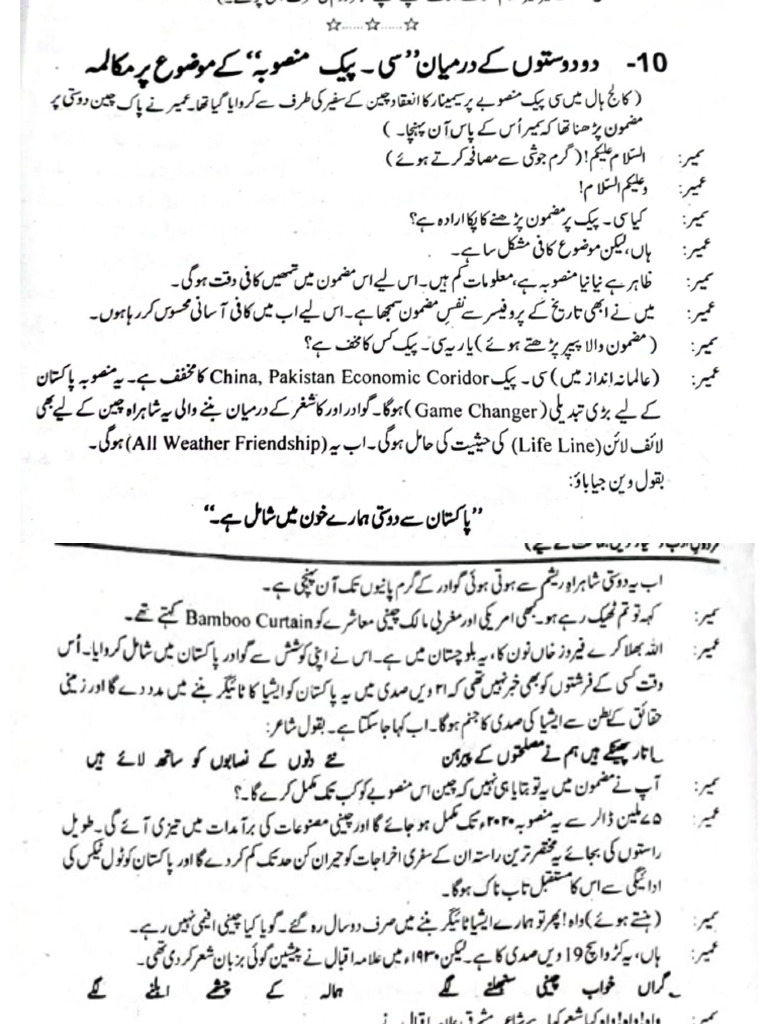 ☆......☆......☆
10- دو دوستوں کے درمیان ”سی ۔ پیک منصوبہ“ کے موضوع پر مکالمہ
( کالج ہال میں سی پیک منصوبے پر سیمینار کا انعقاد چین کے سفیر کی طرف سے کروایا گیا تھا۔ عمیر نے پاک چین دوستی پر
مضمون پڑھنا تھا کہ سمیر اُس کے پاس آن پہنچا۔ )
سمیر: السّلام علیکم! (گرم جوشی سے مصافحہ کرتے ہوئے)
عمیر: وعلیکم السّلام!
سمیر: کیا سی ۔ پیک پر مضمون پڑھنے کا پکا ارادہ ہے؟
عمیر: ہاں، لیکن موضوع کافی مشکل سا ہے۔
سمیر: ظاہر ہے نیا نیا منصوبہ ہے، معلومات کم ہیں۔ اس لیے اس مضمون میں تمھیں کافی دقت ہوگی۔
عمیر: میں نے ابھی تاریخ کے پروفیسر سے نفسِ مضمون سمجھا ہے۔ اس لیے اب میں کافی آسانی محسوس کر رہا ہوں۔
سمیر: (مضمون والا پیپر پڑھتے ہوئے) یار یہ سی ۔ پیک کس کا مخفف ہے؟
عمیر: (عالمانہ انداز میں) سی ۔ پیک China, Pakistan Economic Coridor کا مخفف ہے۔ یہ منصوبہ پاکستان
کے لیے بڑی تبدیلی (Game Changer) ہوگا۔ گوادر اور کاشغر کے درمیان بننے والی یہ شاہراہ چین کے لیے بھی
لائف لائن (Life Line) کی حیثیت کی حامل ہوگی۔ اب یہ (All Weather Friendship) ہوگی۔
بقول وین جیاباؤ:
”پاکستان سے دوستی ہمارے خون میں شامل ہے۔“
اب یہ دوستی شاہراہِ ریشم سے ہوتی ہوئی گوادر کے گرم پانیوں تک آن پہنچی ہے۔
سمیر: کہہ تو تم ٹھیک رہے ہو۔ کبھی امریکی اور مغربی ممالک چینی معاشرے کو Bamboo Curtain کہتے تھے۔
عمیر: اللہ بھلا کرے فیروز خاں نون کا، یہ بلوچستان میں ہے۔ اس نے اپنی کوشش سے گوادر پاکستان میں شامل کروایا۔ اُس
وقت کسی کے فرشتوں کو بھی خبر نہیں تھی کہ ۲۱ ویں صدی میں یہ پاکستان کو ایشیا کا ٹائیگر بننے میں مدد دے گا اور زمینی
حقائق کے بطن سے ایشیا کی صدی کا جنم ہوگا۔ اب کہا جا سکتا ہے۔ بقول شاعر:
؎ اتار پھینکے ہیں ہم نے مصلحتوں کے پیرہن نئے دنوں کے نصابوں کو ساتھ لائے ہیں
سمیر: آپ نے مضمون میں یہ تو بتایا ہی نہیں کہ چین اس منصوبے کو کب تک مکمل کرے گا۔؟
عمیر: ۷۵ ملین ڈالر سے یہ منصوبہ ۲۰۲۰ء تک مکمل ہو جائے گا اور چینی مصنوعات کی برآمدات میں تیزی آئے گی۔ طویل
راستوں کی بجائے یہ مختصر ترین راستہ ان کے سفری اخراجات کو حیران کن حد تک کم کر دے گا اور پاکستان کو ٹول ٹیکس کی
ادائیگی سے اس کا مستقبل تاب ناک ہوگا۔
سمیر: (ہنستے ہوئے) واہ! پھر تو ہمارے ایشیا ٹائیگر بننے میں صرف دو سال رہ گئے۔ گویا کیا چینی افیمی نہیں رہے۔
عمیر: ہاں، یہ کڑوا سچ 19 ویں صدی کا ہے۔ لیکن ۱۹۳۰ء میں علامہ اقبال نے پیشین گوئی بزبان شعر کر دی تھی۔
؎ گراں خواب چینی سنبھلنے لگے ہمالہ کے چشمے ابلنے لگے